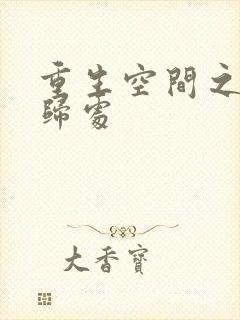 重生空間之
歸處
大香寶